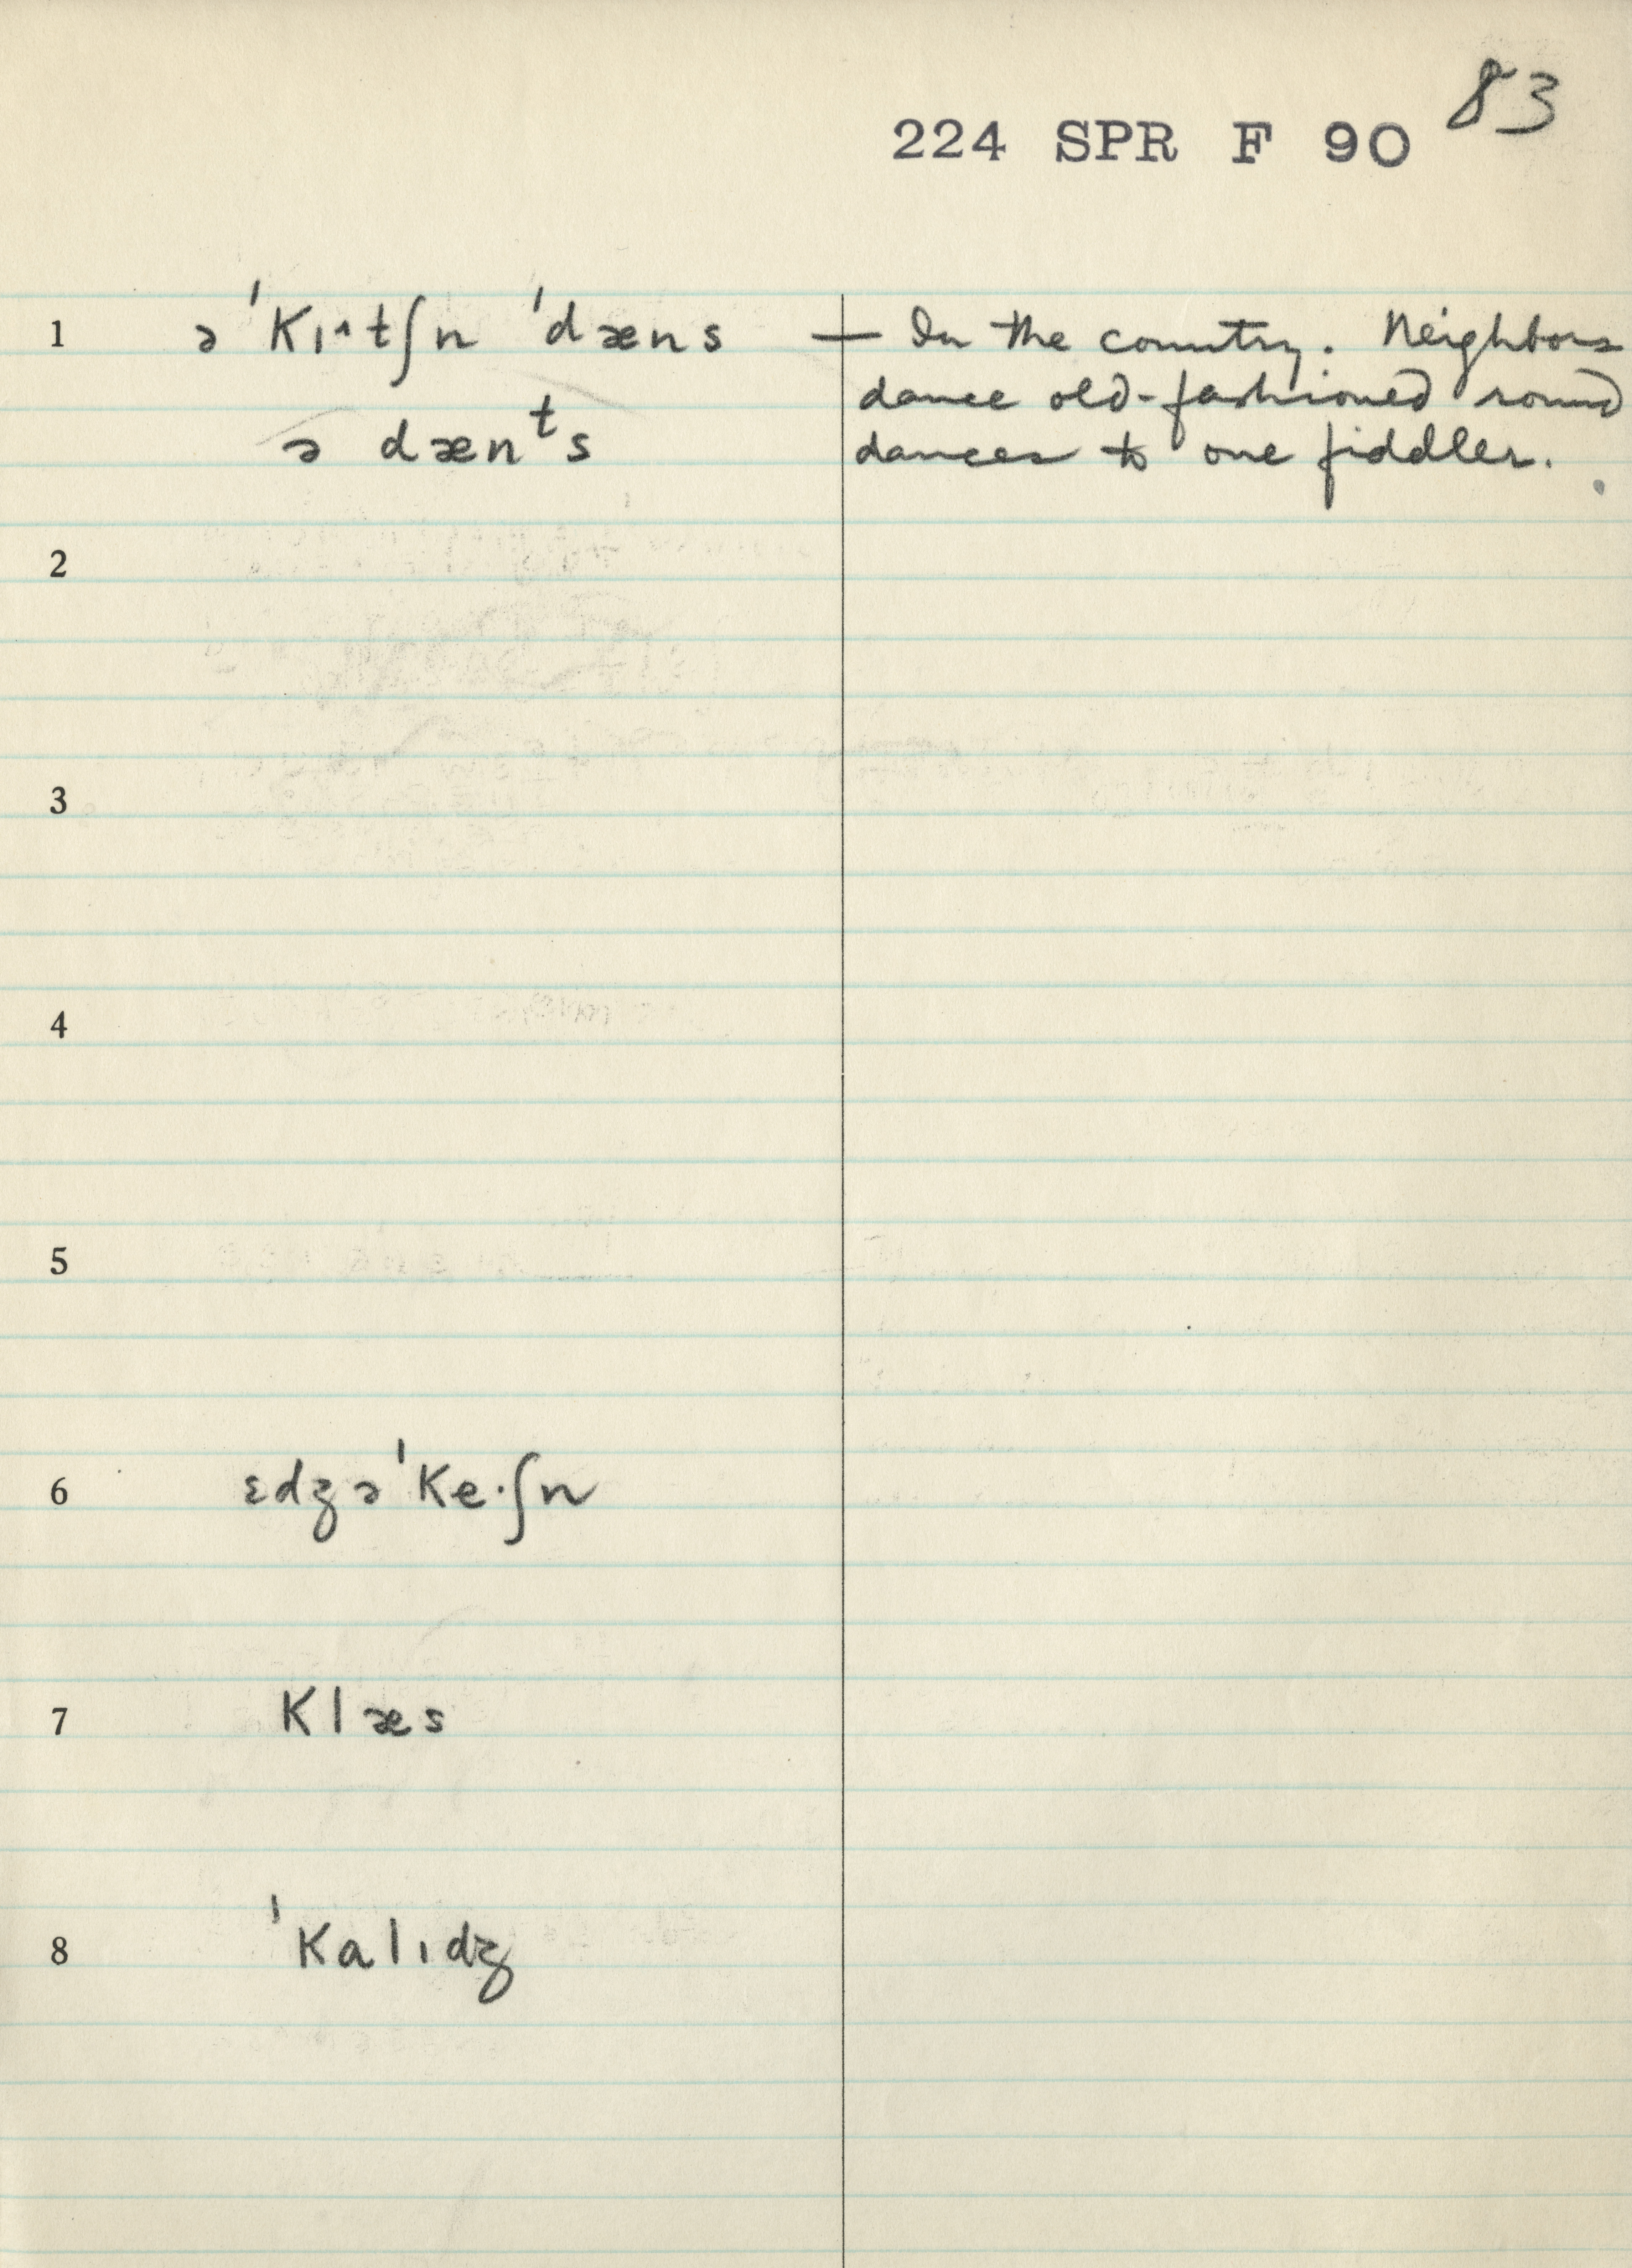 83
224 SPR F 90
1 ə ˈkɪ˄tʃn ˈdæns — In the country. Neighbors
dance old-fashioned round
ə dænᵗs dances to one fiddler.
2
3
4
5
6 ɛdʒəˈke·ʃn
7 klæs
8 ˈkalɪdʒ